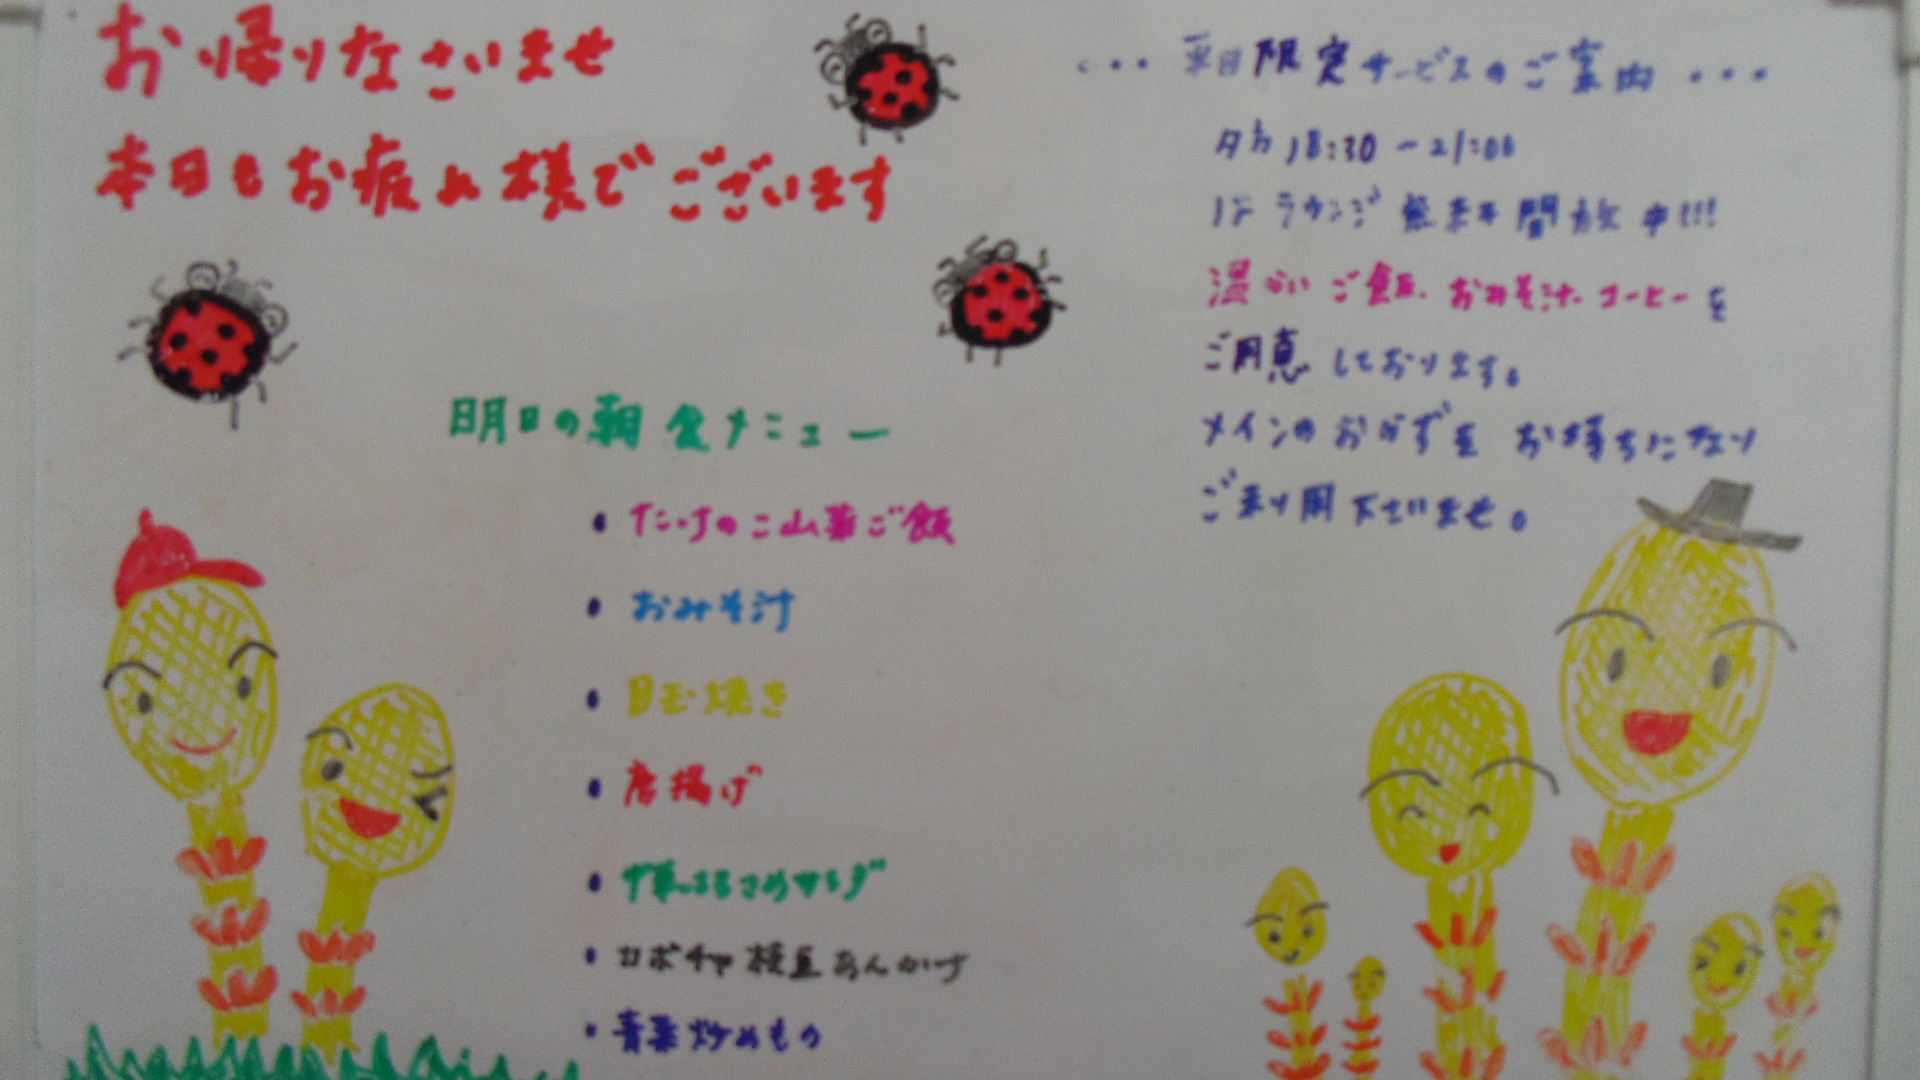 お帰りなさいませ
本日もお疲れ様でございます
明日の朝食メニュー
・たけのこ山菜ご飯
・おみそ汁
・目玉焼き
・唐揚げ
・中華はるさめサラダ
・カボチャ枝豆あんかけ
・青菜炒めもの
・・・平日限定サービスのご案内・・・
夕方18:30~21:00
1Fラウンジ無料開放中!!!
温かいご飯、おみそ汁、コーヒーを
ご用意しております。
メインのおかずをお持ちになり
ご利用下さいませ。